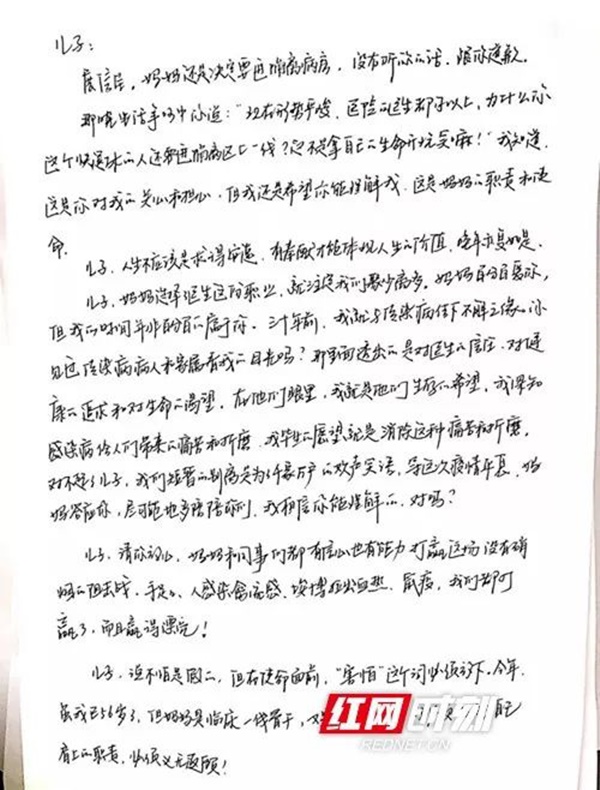 儿子：
展信佳，妈妈还是决定要进隔离病房，没有听你的话，跟你道歉。
那晚电话争吵中你道：“现在形势严峻，医院的医生那么多，为什么你
这个快退休的人还要进隔离区上一线？您不是拿自己的生命开玩笑嘛！”我知道，
这是你对我的关心和担心，但我还是希望你能理解我，这是妈妈的职责和使
命。
儿子，人生不应该是求得安逸，有奉献才能体现人生的价值，晚年亦复如是。
儿子，妈妈选择医生这份职业，就注定我们聚少离多。妈妈百分百爱你，
但我的时间并非百分百的属于你。三十年前，我就与传染病结下不解之缘。你
见过传染病病人和家属看我的目光吗？那里面透出的是对医生的信任、对健
康的追求和对生命的渴望。在他们眼里，我就是他们生存的希望，我深知
感染病给人们带来的痛苦和折磨，我毕生的愿望就是消除这种痛苦和折磨。
对不起了儿子，我们短暂的别离是为了千家万户的欢声笑语，等这次疫情平复，妈
妈答应你，尽可能地多陪陪你们，我相信你能理解的，对吗？
儿子，请你放心，妈妈和同事们都有信心也有能力打赢这场没有硝
烟的阻击战，手足口、人感染禽流感、埃博拉出血热、鼠疫，我们都打
赢了，而且赢得漂亮！
儿子，说不怕是假的，但在使命面前，“害怕”这个词必须放下。今年
虽我已56岁了，但妈妈是临床一线骨干，自己
肩上的职责，必须义无返顾！
红网时刻
REDNET.CN